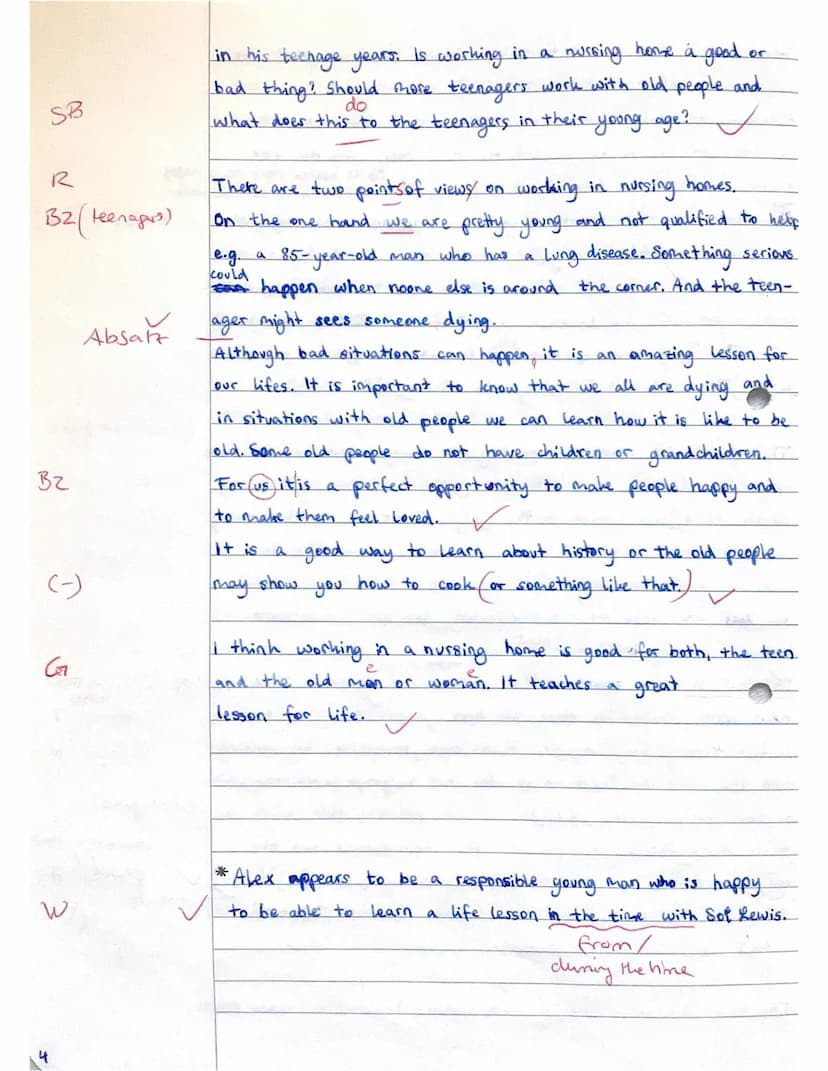 in his teenage years. Is working in a nursing home a good or
bad thing? Should more teenagers work with old people and
do
SB
what does this to the teenagers in their young age?
R
There are two points of views on working in nursing homes.
BZ (teenagers)
On the one hand we are pretty young and not qualified to help
e.g. a 85-year-old man who has a lung disease. Something serious
could
happen when noone else is around the corner. And the teen-
ager might sees someone dying.
Absatz
Although bad situations can happen, it is an amazing lesson for
our lifes. It is important to know that we all are dying and
in situations with old people we can learn how it is like to be
old. Some old people do not have children or grandchildren.
BZ
For us it is a perfect opportunity to make people happy and
to make them feel loved.
It is a good way to learn about history or the old people
(-)
may show you how to cook (or something like that.)
I think working in a nursing home is good for both, the teen
Gr
e e
and the old man or woman. It teaches a great
lesson for life.
*Alex appears to be a responsible young man who is happy
W
to be able to learn a life lesson in the time with Sol Lewis.
from/
during the time
4